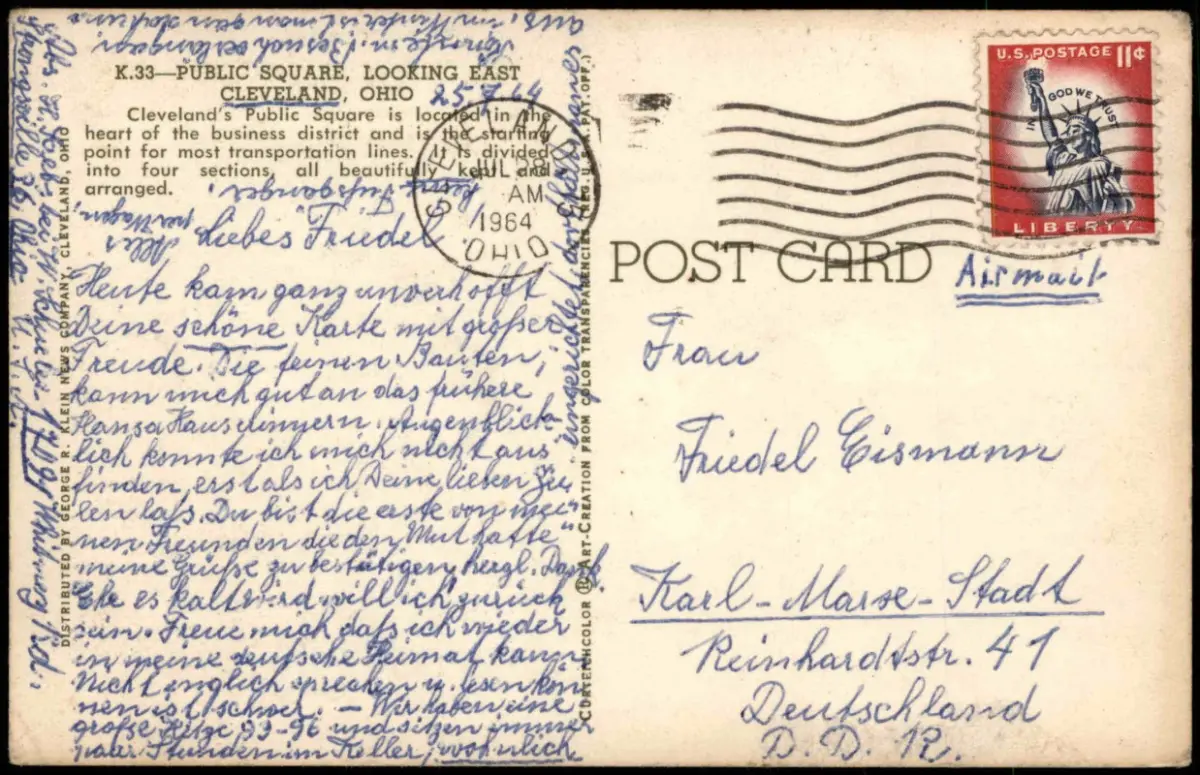 K.33—PUBLIC SQUARE, LOOKING EAST
CLEVELAND, OHIO 25.7.64
Cleveland's Public Square is located in the
heart of the business district and is the starting
point for most transportation lines. It is divided
into four sections, all beautifully kept and
arranged.
kein Fußgänger.
Alles per Wagen,
Liebes Friedel
Heute kam ganz unverhofft
Deine schöne Karte mit großer
Freude. Die feinen Bauten,
kann mich gut an das frühere
Hansa Haus erinnern. Augenblick-
lich konnte ich mich nicht aus
finden, erst als ich Deine lieben Zei
len las. Du bist die erste von mei
nen Freunden die den "Mut hatte"
meine Grüße zu bestätigen, herzl. Dank.
Ehe es kalt wird will ich zurück
sein. Freue mich daß ich wieder
in meine deutsche Heimat kann.
Nicht englich sprechen u. lesen kön
nen ist schwer. — Wir haben eine
große Hitze 93-96 und sitzen immer
paar Stunden im Keller, wohnlich
eingerichtet
CLEVELAND
JUL 28
AM
1964
OHIO
U.S. POSTAGE 11¢
IN GOD WE TRUST
LIBERTY
POST CARD
Airmail
Frau
Friedel Eismann
Karl-Marx-Stadt
Reinhardtstr. 41
Deutschland
D.D.R.
DISTRIBUTED BY GEORGE R. KLEIN NEWS COMPANY, CLEVELAND, OHIO
CURTEICHCOLOR ® ART-CREATION FROM COLOR TRANSPARENCIES (REG. U.S. PAT. OFF.)
Strongsville 36 Ohio